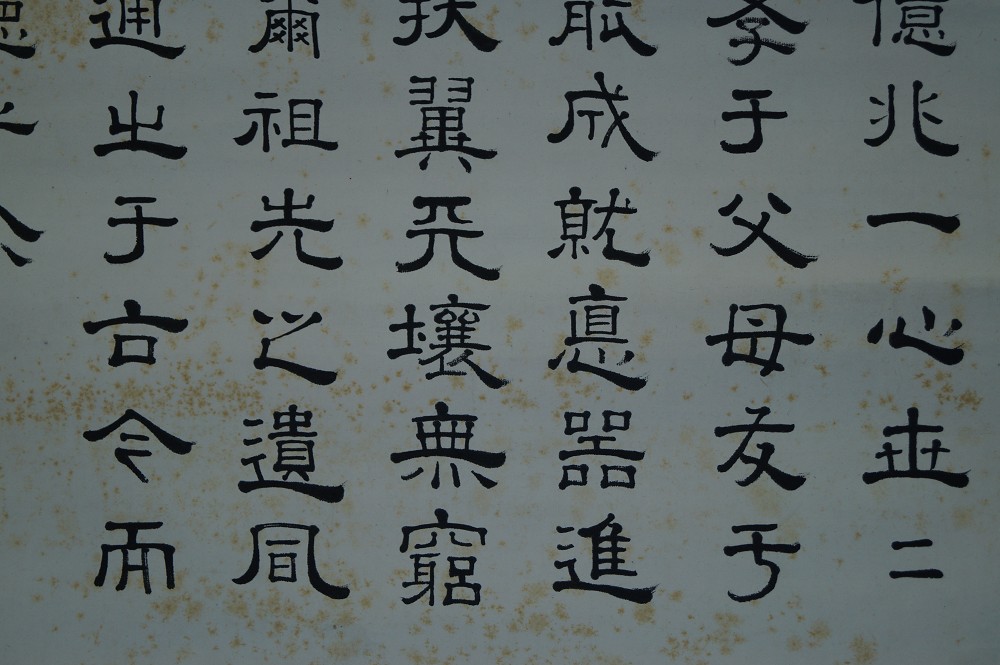 億兆一心世二
孝于父母友于
能成就悳器進
扶翼天壤無窮
爾祖先之遺凬
通之于古今而